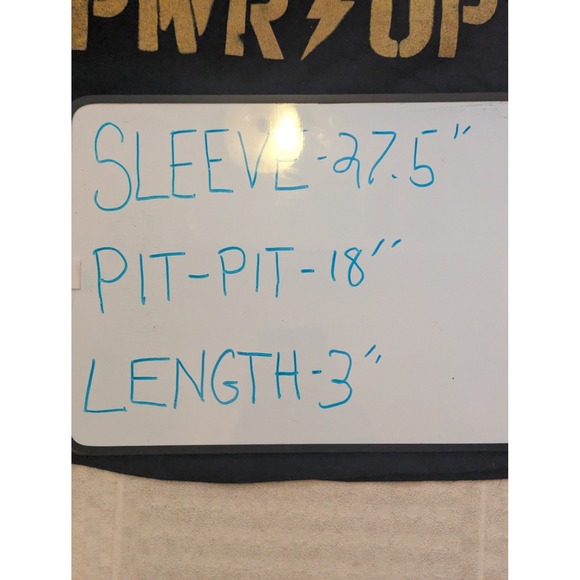 PWR⚡UP
SLEEVE-27.5"
PIT-PIT-18"
LENGTH-3"